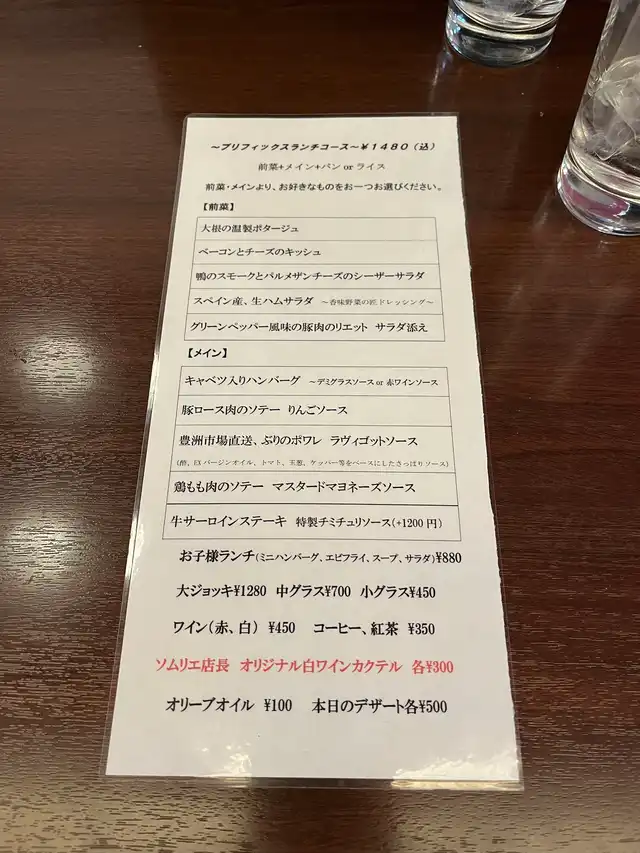 ～プリフィックスランチコース～￥１４８０（込）
前菜+メイン+パン or ライス
前菜・メインより、お好きなものをお一つお選びください。
【前菜】
大根の温製ポタージュ
ベーコンとチーズのキッシュ
鴨のスモークとパルメザンチーズのシーザーサラダ
スペイン産、生ハムサラダ ～香味野菜の匠ドレッシング～
グリーンペッパー風味の豚肉のリエット サラダ添え
【メイン】
キャベツ入りハンバーグ ～デミグラスソース or 赤ワインソース
豚ロース肉のソテー りんごソース
豊洲市場直送、ぶりのポワレ ラヴィゴットソース
（酢、EXバージンオイル、トマト、玉葱、ケッパー等をベースにしたさっぱりソース）
鶏もも肉のソテー マスタードマヨネーズソース
牛サーロインステーキ 特製チミチュリソース(+1200 円)
お子様ランチ(ミニハンバーグ、エビフライ、スープ、サラダ)¥880
大ジョッキ¥1280 中グラス¥700 小グラス¥450
ワイン（赤、白） ¥450 コーヒー、紅茶 ¥350
ソムリエ店長 オリジナル白ワインカクテル 各¥300
オリーブオイル ¥100 本日のデザート各¥500